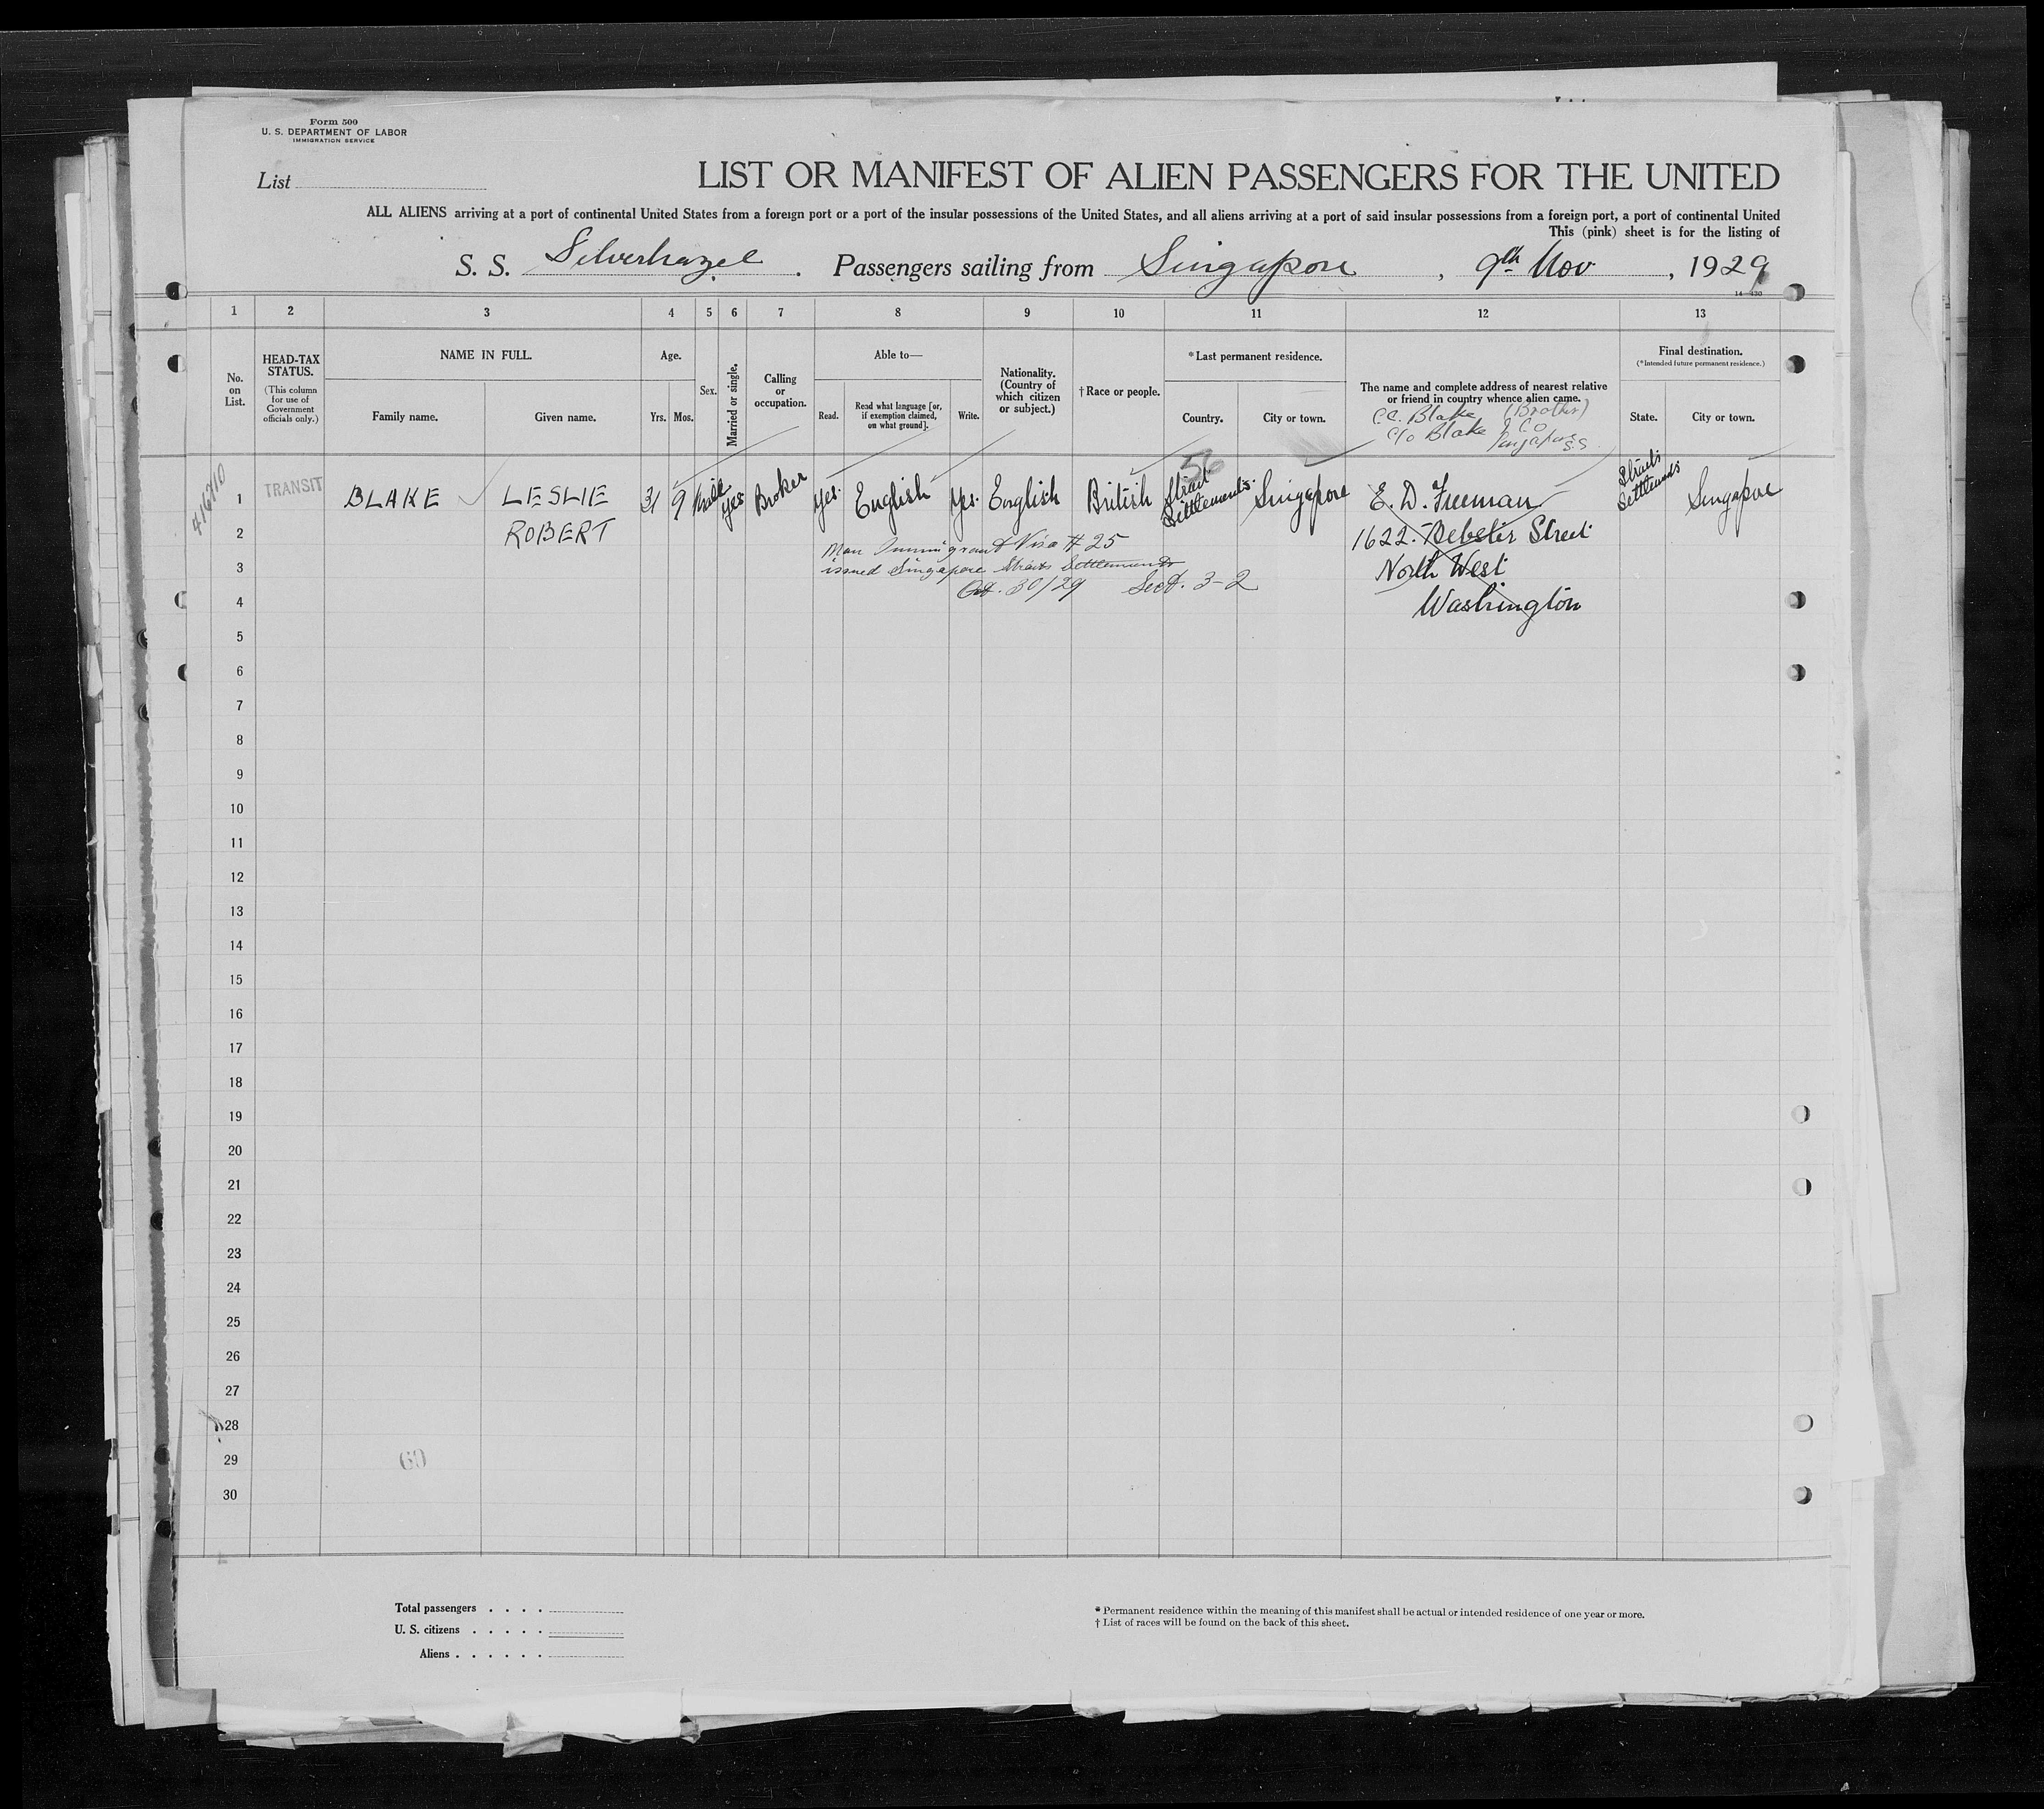 Form 500
U. S. DEPARTMENT OF LABOR
IMMIGRATION SERVICE
List
LIST OR MANIFEST OF ALIEN PASSENGERS FOR THE UNITED
ALL ALIENS arriving at a port of continental United States from a foreign port or a port of the insular possessions of the United States, and all aliens arriving at a port of said insular possessions from a foreign port, a port of continental United
This (pink) sheet is for the listing of
S. S. Silverhazel . Passengers sailing from Singapore , 9th Nov , 1929
1 2 3 4 5 6 7 8 9 10 11 12 13
No. on List.
HEAD-TAX STATUS.
(This column for use of Government officials only.)
NAME IN FULL.
Family name.
Given name.
Age.
Yrs. Mos.
Sex.
Married or single.
Calling or occupation.
Able to—
Read.
Read what language [or, if exemption claimed, on what ground].
Write.
Nationality. (Country of which citizen or subject.)
† Race or people.
* Last permanent residence.
Country.
City or town.
The name and complete address of nearest relative or friend in country whence alien came.
C.C. Blake (Brother)
c/o Blake & Co
Singapore S.S.
Final destination.
(* Intended future permanent residence.)
State.
City or town.
416710
56
1 TRANSIT BLAKE LESLIE 31 9 Male yes Broker yes. English yes. English British Strait Settlements. Singapore E. D. Freeman Straits Settlements Singapore
2 ROBERT 1622. Webster Street
Non Immigrant Visa # 25
3 issued Singapore Straits Settlements North West
Oct. 30/29 Sect. 3-2
4 Washington
5
6
7
8
9
10
11
12
13
14
15
16
17
18
19
20
21
22
23
24
25
26
27
28
29 60
30
Total passengers . . . .
U. S. citizens . . . . .
Aliens . . . . . .
* Permanent residence within the meaning of this manifest shall be actual or intended residence of one year or more.
† List of races will be found on the back of this sheet.